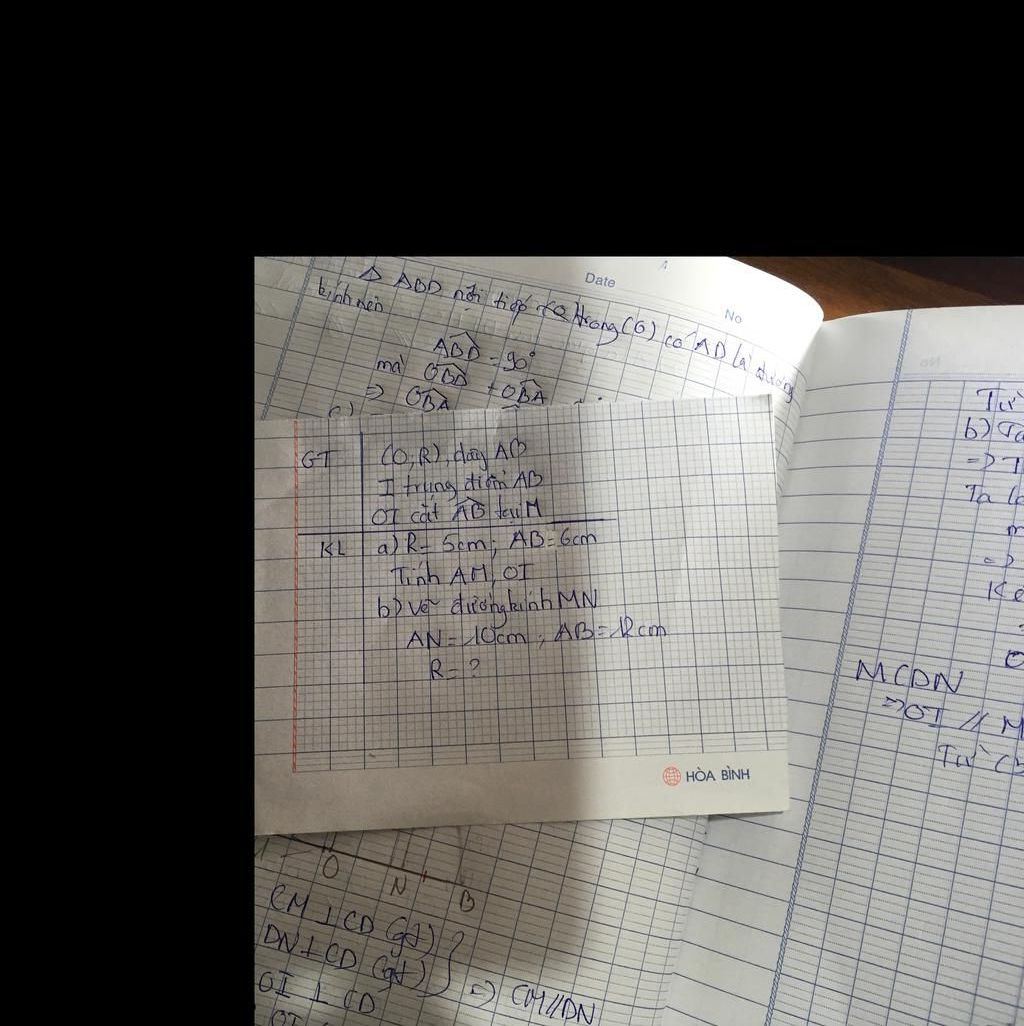 Date
No
Δ ABD nội tiếp trong (O) có AD là đường
kính nên
ABD = 90°
mà OBD + OBA
=> OBA
c)
GT (O,R), dây AB
I trung điểm AB
OI cắt AB tại M
KL a) R = 5cm; AB = 6cm
Tính AM, OI
b) Vẽ đường kính MN
AN = 10cm, AB = 12cm
R = ?
HÒA BÌNH
O N B
CM ⊥ CD (gt)
DN ⊥ CD (gt)
OI ⊥ CD
=> CM//DN
Từ
b) Ta
=>
Ta
=>
Kẻ
MCDN
=> OI // M
Từ